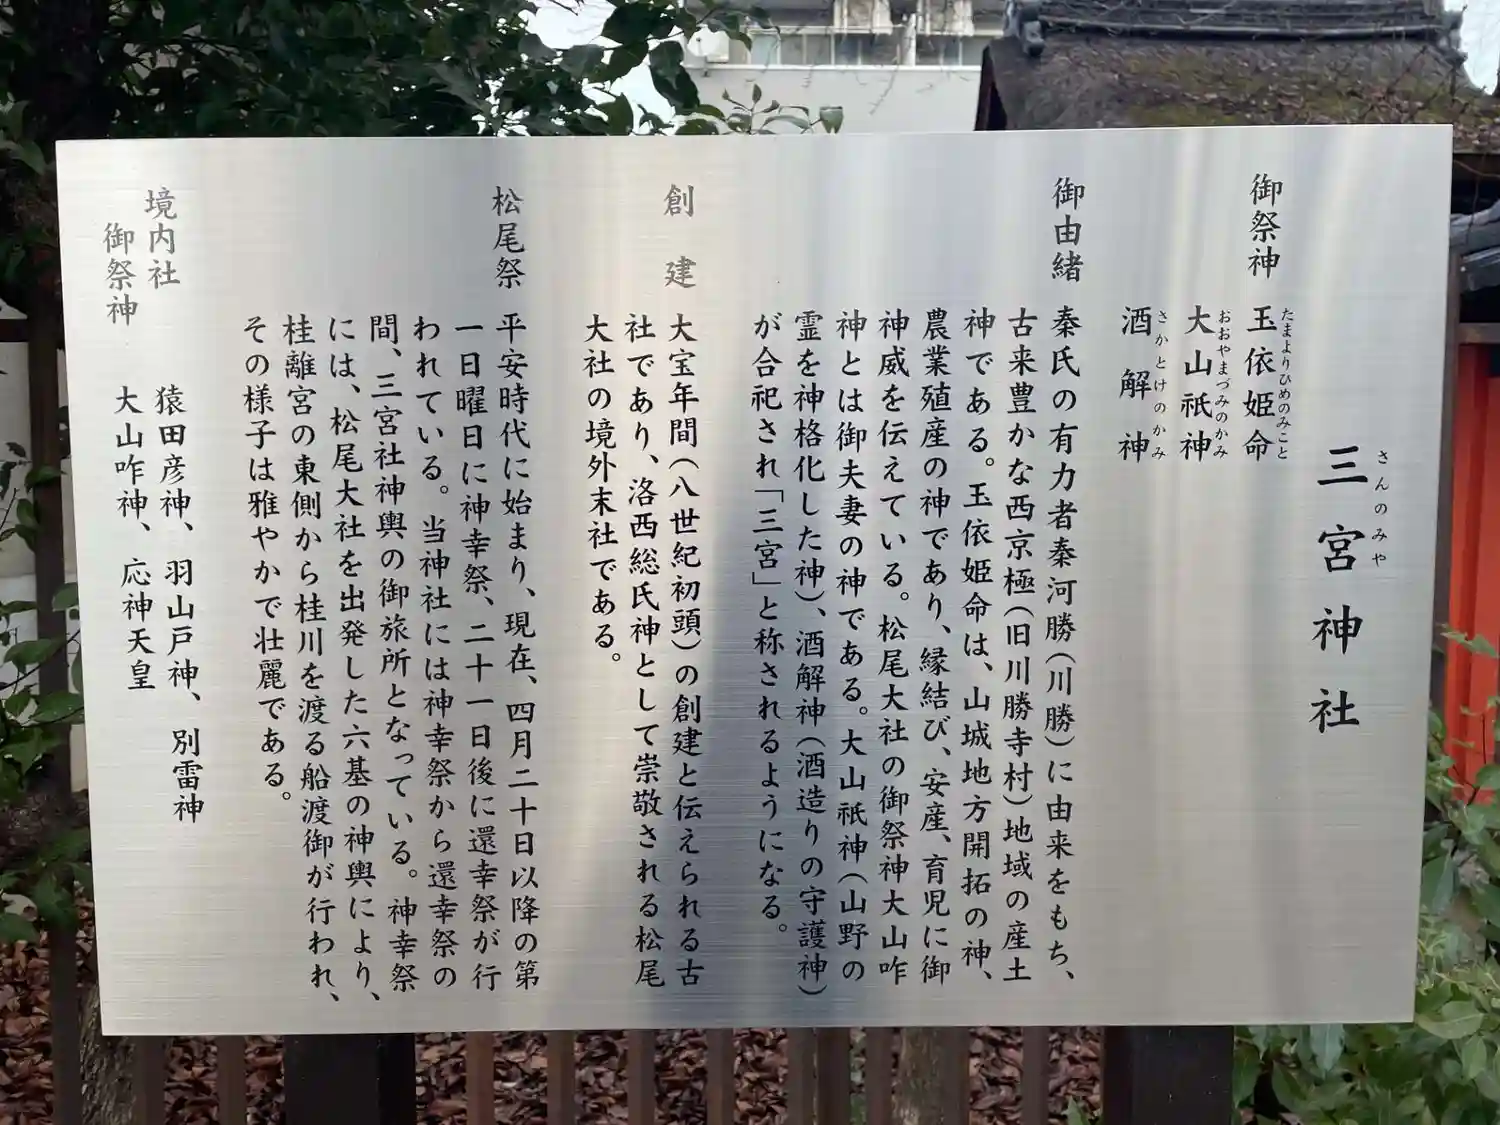 三宮神社
さんのみや
御祭神
玉依姫命
たまよりひめのみこと
大山祇神
おおやまづみのかみ
酒解神
さかとけのかみ
御由緒
秦氏の有力者秦河勝(川勝)に由来をもち、
古来豊かな西京極(旧川勝寺村)地域の産土
神である。玉依姫命は、山城地方開拓の神、
農業殖産の神であり、縁結び、安産、育児に御
神威を伝えている。松尾大社の御祭神大山咋
神とは御夫妻の神である。大山祇神(山野の
霊を神格化した神)、酒解神(酒造りの守護神)
が合祀され「三宮」と称されるようになる。
創建
大宝年間(八世紀初頭)の創建と伝えられる古
社であり、洛西総氏神として崇敬される松尾
大社の境外末社である。
松尾祭
平安時代に始まり、現在、四月二十日以降の第
一日曜日に神幸祭、二十一日後に還幸祭が行
われている。当神社には神幸祭から還幸祭の
間、三宮社神輿の御旅所となっている。神幸祭
には、松尾大社を出発した六基の神輿により、
桂離宮の東側から桂川を渡る船渡御が行われ、
その様子は雅やかで壮麗である。
境内社
御祭神
猿田彦神、羽山戸神、別雷神
大山咋神、応神天皇